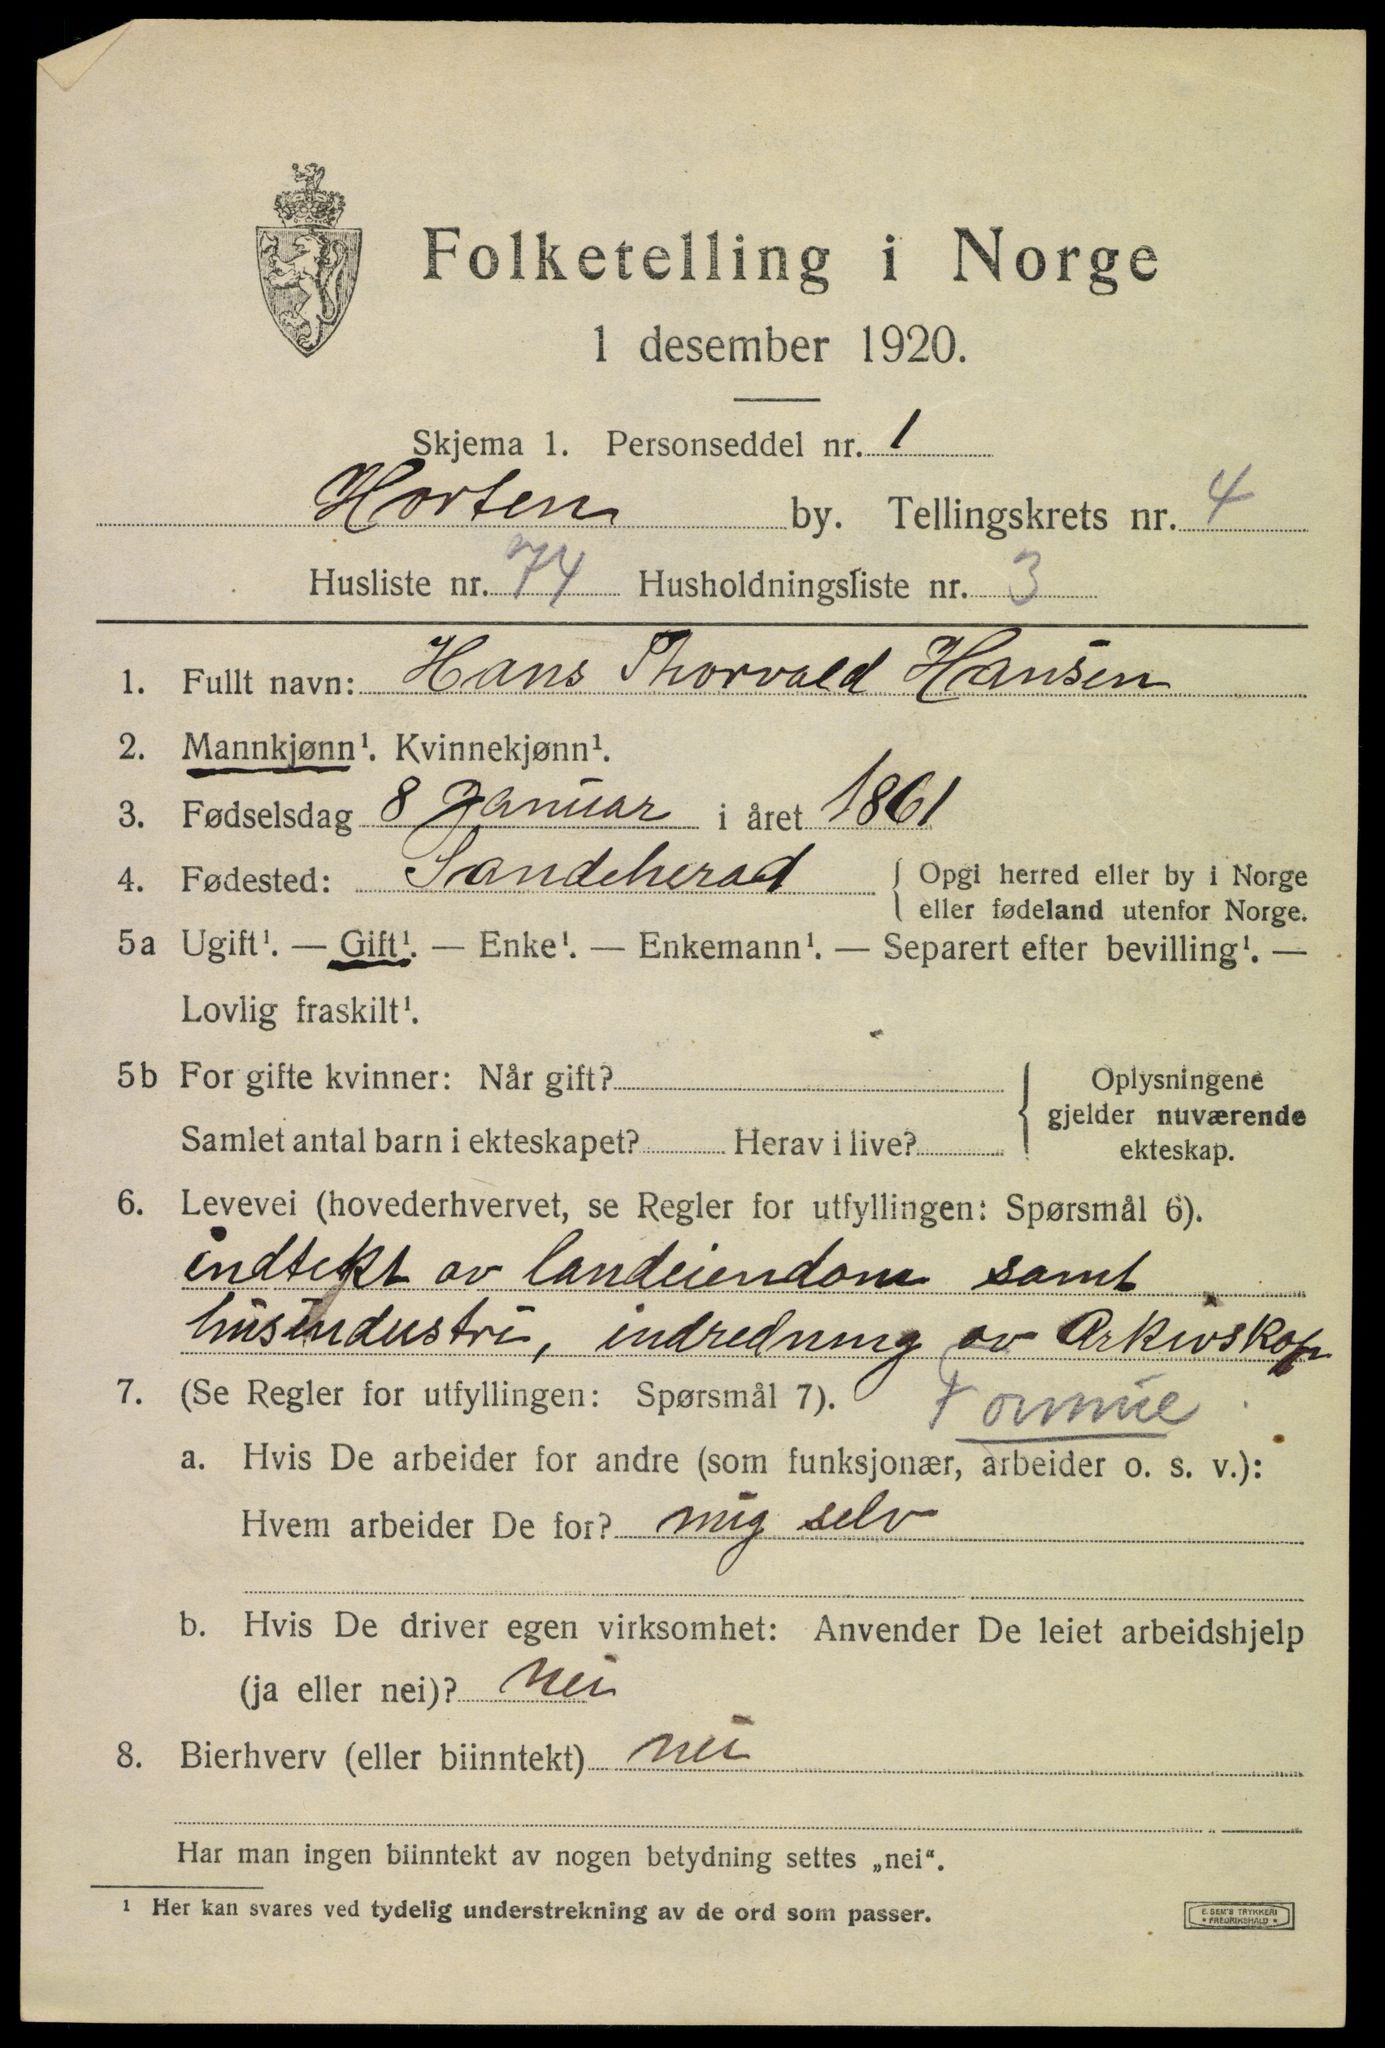 Folketelling i Norge
1 desember 1920.
Skjema 1. Personseddel nr. 1
Horten by. Tellingskrets nr. 4
Husliste nr. 74 Husholdningsliste nr. 3
1. Fullt navn: Hans Thorvald Hansen
2. Mannkjønn¹. Kvinnekjønn¹.
3. Fødselsdag 8 Januar i året 1861
4. Fødested: Sandeherad { Opgi herred eller by i Norge
eller fødeland utenfor Norge.
5a Ugift¹. — Gift¹. — Enke¹. — Enkemann¹. — Separert efter bevilling¹. —
Lovlig fraskilt¹.
5b For gifte kvinner: Når gift? { Oplysningene
gjelder nuværende
Samlet antal barn i ekteskapet? Herav i live?
ekteskap.
6. Levevei (hovederhvervet, se Regler for utfyllingen: Spørsmål 6).
indtekt av landeiendom samt
husindustri, indredning av Arkivskap
7. (Se Regler for utfyllingen: Spørsmål 7). Formue
a. Hvis De arbeider for andre (som funksjonær, arbeider o. s. v.):
Hvem arbeider De for? mig selv
b. Hvis De driver egen virksomhet: Anvender De leiet arbeidshjelp
(ja eller nei)? nei
8. Bierhverv (eller biinntekt) nei
Har man ingen biinntekt av nogen betydning settes „nei“.
¹ Her kan svares ved tydelig understrekning av de ord som passer.
E. SEM'S TRYKKERI
* FREDRIKSHALD *